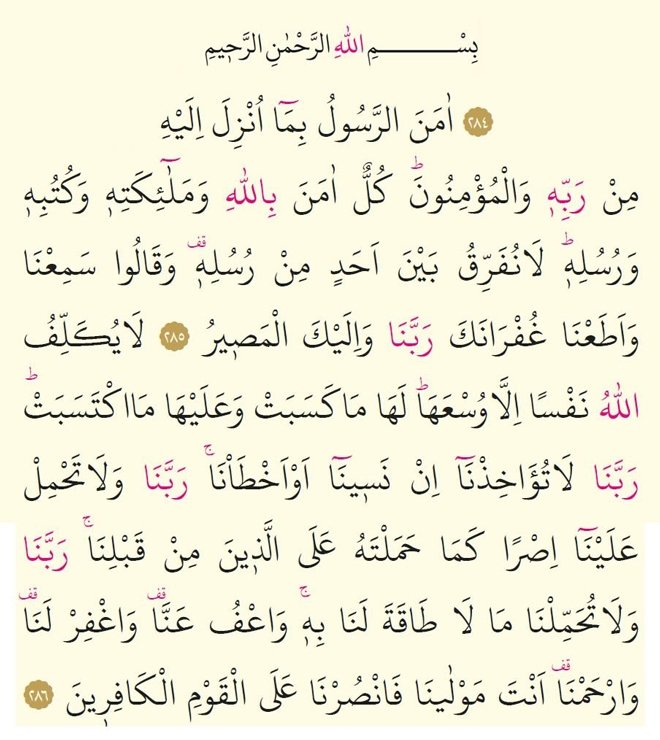 بِسْمِ اللّٰهِ الرَّحْمٰنِ الرَّحٖيمِ
﴿٢٨٤﴾ اٰمَنَ الرَّسُولُ بِمَٓا اُنْزِلَ اِلَيْهِ
مِنْ رَبِّهٖ وَالْمُؤْمِنُونَؕ كُلٌّ اٰمَنَ بِاللّٰهِ وَمَلٰٓئِكَتِهٖ وَكُتُبِهٖ
وَرُسُلِهٖؕ لَانُفَرِّقُ بَيْنَ اَحَدٍ مِنْ رُسُلِهٖ قف وَقَالُوا سَمِعْنَا
وَاَطَعْنَا غُفْرَانَكَ رَبَّنَا وَاِلَيْكَ الْمَصٖيرُ ﴿٢٨٥﴾ لَايُكَلِّفُ
اللّٰهُ نَفْسًا اِلَّا وُسْعَهَاؕ لَهَا مَاكَسَبَتْ وَعَلَيْهَا مَااكْتَسَبَتْؕ
رَبَّنَا لَاتُؤَاخِذْنَٓا اِنْ نَسٖينَٓا اَوْاَخْطَاْنَاۚ رَبَّنَا وَلَاتَحْمِلْ
عَلَيْنَٓا اِصْرًا كَمَا حَمَلْتَهُ عَلَى الَّذٖينَ مِنْ قَبْلِنَاۚ رَبَّنَا
وَلَاتُحَمِّلْنَا مَا لَا طَاقَةَ لَنَا بِهٖۚ وَاعْفُ عَنَّا قف وَاغْفِرْ لَنَا قف
وَارْحَمْنَا قف اَنْتَ مَوْلٰينَا فَانْصُرْنَا عَلَى الْقَوْمِ الْكَافِرٖينَ ﴿٢٨٦﴾